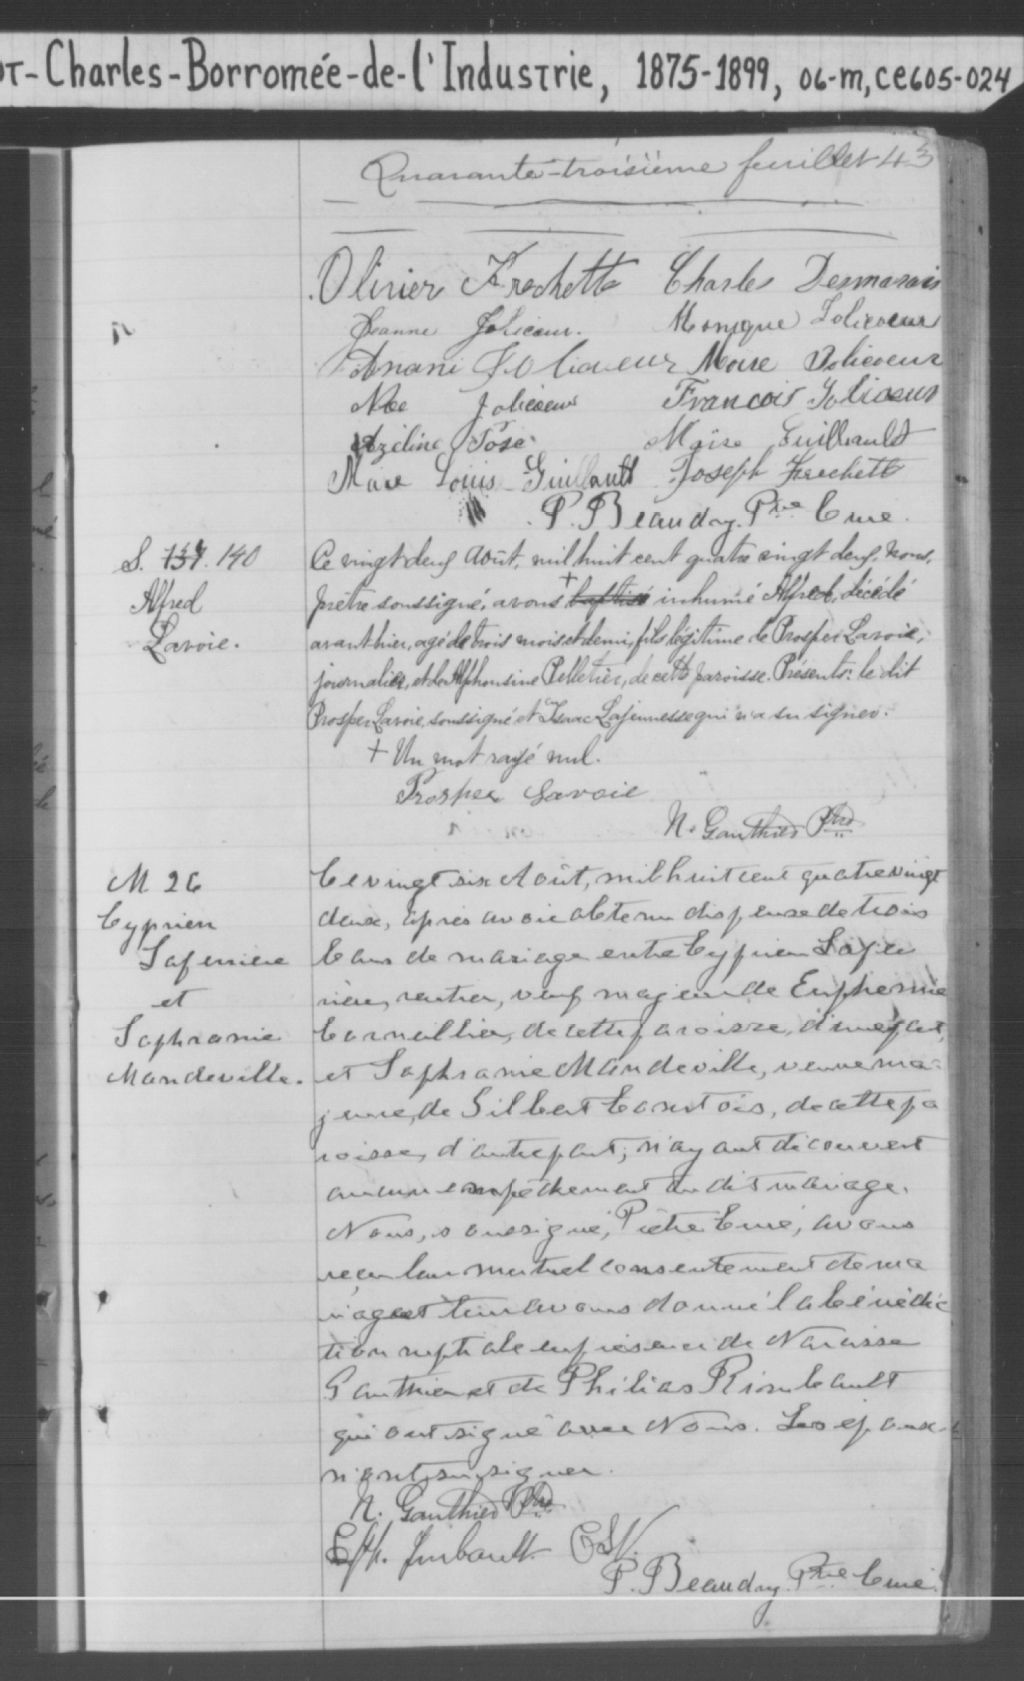 ot-Charles-Borromée-de-l'Industrie, 1875-1899, 06-m, CE605-024
Quarante-troisième feuillet 43
Olivier Frechette Charles Desmarais
Jeanne Jolicoeur. Monique Jolicoeur
Anani Jolicoeur Moise Jolicoeur
Noe Jolicoeur Francois Jolicoeur
Azéline Moise Guilbault
Marie Louis Guilbault Joseph Frechette
P. Beaudry Ptre Curé.
S. 137. 140
Alfred
Lavoie.
Ce vingt deux Août, mil huit cent quatre vingt deux, nous,
prêtre soussigné, avons + baptisé inhumé Alfred, décédé
avant hier, agé de trois mois et demi, fils légitime de Prosper Lavoie,
journalier, et de Alphonsine Pelletier, de cette paroisse. Présents: le dit
Prosper Lavoie, soussigné et Isaac Lajeunesse qui n'a su signer.
+ Un mot rayé nul.
Prosper Lavoie
N. Gauthier Ptre
M 26
Cyprien
Laferriere
et
Sophranie
Mandeville.
Ce vingt six Août, mil huit cent quatre vingt
deux, après avoir obtenu dispense de trois
bans de mariage entre Cyprien Lafer
rière, rentier, veuf majeur de Euphemie
Cornellier, de cette paroisse, d'une part,
et Sophranie Mandeville, veuve ma-
jeure, de Gilbert Courtois, de cette pa
roisse, d'autre part; n'ayant découvert
aucun empêchement au dit mariage.
Nous, soussigné, Prêtre Curé, avons
reçu leur mutuel consentement de ma
riage et leur avons donné la bénédic
tion nuptiale en présence de Narcisse
Gauthier et de Philias Rimbault
qui ont signé avec Nous. Les epoux
n'ont su signer.
N. Gauthier Ptre
Imbault CSV.
P. Beaudry Ptre Curé.